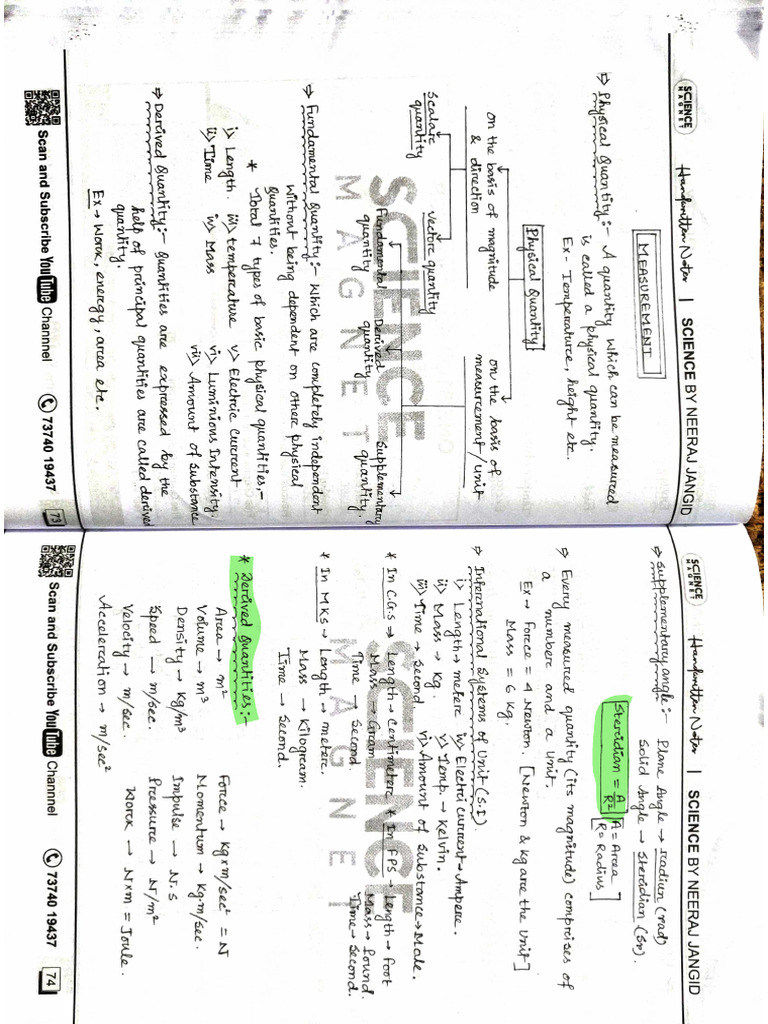 SCIENCE MAGNET Handwritten Notes | SCIENCE BY NEERAJ JANGID
MEASUREMENT
⇒ Physical Quantity:- A quantity which can be measured
is called a physical quantity.
Ex - Temperature, height etc.
Physical Quantity
on the basis of magnitude
& direction
on the basis of
measurement/Unit
Scalar
quantity
vector quantity
Fundamental
quantity
Derived
quantity
Supplementary
quantity.
SCIENCE
MAGNET
⇒ Fundamental Quantity:- Which are completely independent
Without being dependent on other physical
Quantities.
* Total 7 types of basic physical quantities,-
i) Length. iii) temperature v) Electric Current
ii) Time iv) Mass vi) Luminious Intensity.
vii) Amount of Substance
⇒ Derived Quantity:- Quantities are expressed by the
help of principal quantities are called derived
quantity.
Ex → Work, energy, area etc.
Scan and Subscribe YouTube Channnel 73740 19437 73
SCIENCE MAGNET Handwritten Notes | SCIENCE BY NEERAJ JANGID
⇒ Supplementary angle:- Plane Angle → radium (rad)
Solid Angle → Steridian (Sr).
Steridian = A/R² [A = Area
R = Radius]
⇒ Every measured quantity (its magnitude) comprises of
a number and a unit.
Ex → Force = 4 Newton. [Newton & kg are the Unit]
Mass = 6 Kg.
⇒ International Systems of Unit (S.I)
i) Length → metere iv) Electri current → Ampere.
ii) Mass → Kg. v) Temp. → Kelvin.
iii) Time → Second vi) Amount of Substance → Mole.
* In C.G.S → Length → Centimetere * In FPS → Length → foot
Mass → Gram Mass → Pound.
Time → Second. Time → Second.
* In MKS → Length → metere.
Mass → Kilogream.
Time → Second.
SCIENCE
MAGNET
* Derived Quantities:-
Area → m² Force → Kg×m/sec² = N
Volume → m³ Momentum → Kg.m/sec.
Density → Kg/m³ Impulse → N.S
Speed → m/sec. Pressure → N/m²
Velocity → m/sec. Work → N×m = Joule.
Acceleration → m/sec²
Scan and Subscribe YouTube Channnel 73740 19437 74